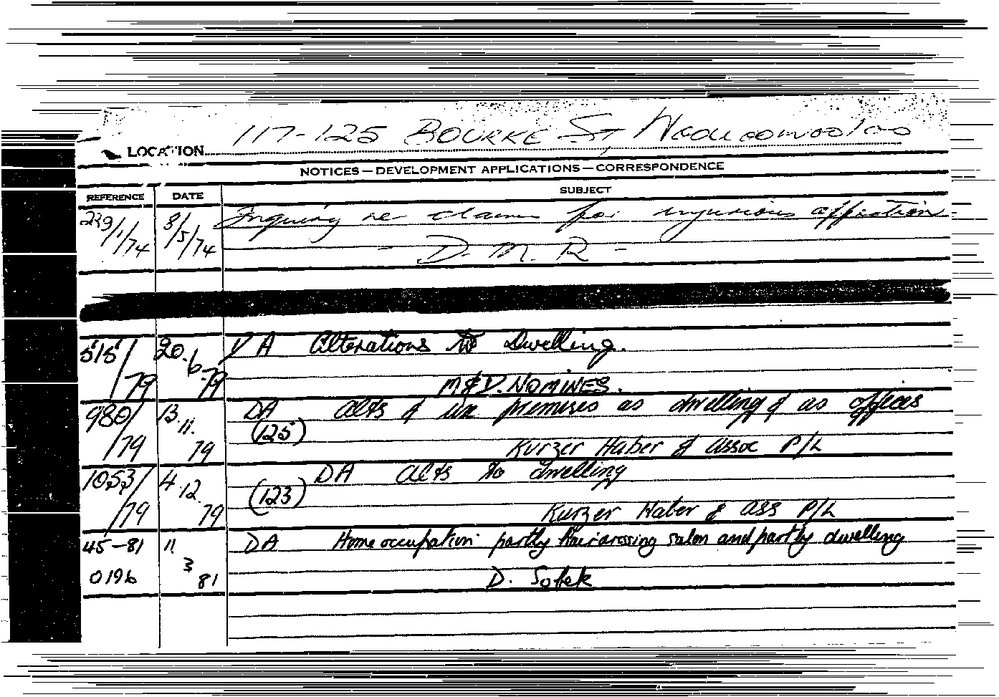 LOCATION 117-125 BOURKE ST, Woolloomooloo
NOTICES — DEVELOPMENT APPLICATIONS — CORRESPONDENCE
REFERENCE DATE SUBJECT
239/1/74 8/5/74 Inquiry re claim for injurious affection
- D. M. R -
515/79 20.6.79 DA Alterations to dwelling.
M&D. NOMINES.
980/79 13.11.79 DA (125) alts & use premises as dwelling & as offices
Kurzer Haber & assoc P/L
1053/79 4.12.79 DA (123) alts to dwelling
Kurzer Haber & ass P/L
45-81 0196 11 3 81 DA Home occupation partly hairdressing salon and partly dwelling
D. Sofek